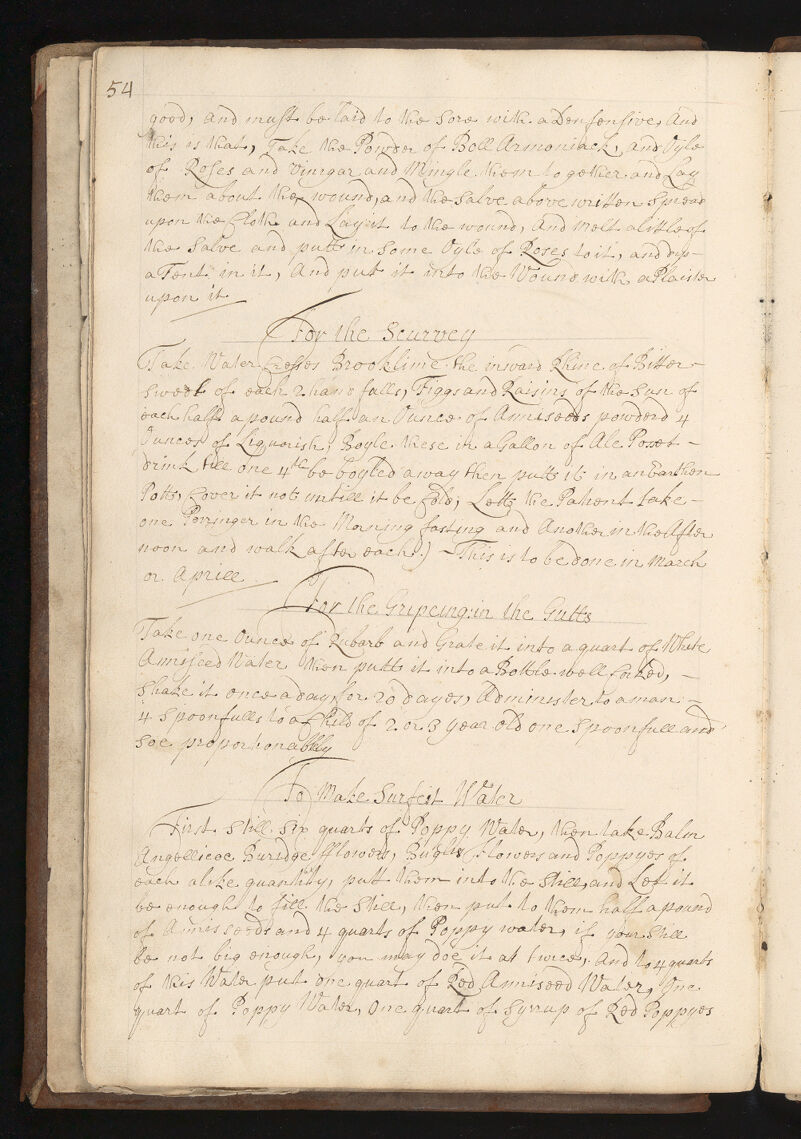 54
good, and must be laid to the sore with a Denfensive, And
this is that, Take the Powder of Boll Armoniack, and Oyle
of Roses and Vinigar and Mingle them together and Lay
them about the wound, and the Salve above written Spread
upon the Cloth and Lay it to the wound, And melt a little of
the Salve and putt in Some Oyle of Roses to it, and dip
a Tent in it, And put it into the Wound with a Plaister
upon it
For the Scurvey
Take Water Cresses Brooklime the inward Rhine of Bitter-
Sweet of each 2 handfulls, Figgs and Raisins of the Sun of
each half a pound half an Ounce of Anniseeds powderd 4
Ounces of Liquorish, Boyle these in a Gallon of Ale Poset-
drink till one 4th be boyled away then putt it in an Earthen
Pott, Cover it not untill it be Cold, Lett the Patient take -
one Poringer in the Morning fasting and Another in the After
noon and walk after each) - This is to be done in March
or Aprill
For the Gripeing in the Gutts
Take one Ounce of Rubarb and Grate it into a quart of White
Anniseed Water then putt it into a Bottle well Corked, -
Shake it once a day for 20 dayes, Administer to a man -
4 Spoonfulls to a Child of 2 or 3 year old one Spoonfull and
Soe proportionablly
To Make Surfeit Water
First Still Six quarts of Poppy Water, then take Balm
Angellicoe Buridge fflowers, Buglis fflowers and Poppyes of
each alike quantity, putt them into the Still, and Let it
be enough to fill the Still, then put to them half a pound
of Anniseeds and 4 quarts of Poppy water, if your Still
be not big enough, you may doe it at twice, And to 4 quarts
of this Water put one quart of Red Anniseed Water, One
quart of Poppy Water, One quart of Syrrup of Red Poppyes